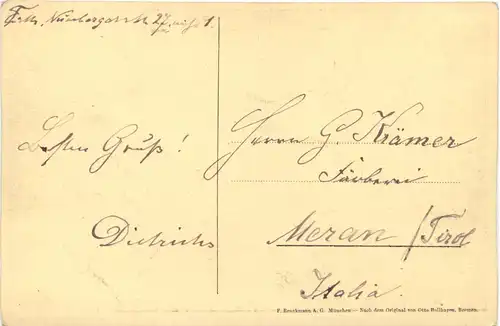 Nürnbergerstr. 27
Besten Gruß!
Dietrichs
Herrn G. Krämer
Färberei
Meran / Tirol
Italia.
F. Bruckmann A. G. München — Nach dem Original von Otto Bollhagen, Bremen.